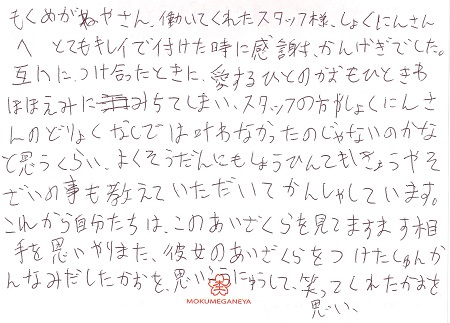 もくめがねやさん、働いてくれたスタッフ様、しょくにんさん
へ とてもキレイで付けた時に感謝、かんげきでした。
互いに、つけ合ったときに、愛するひとのかおもひときわ
ほほえみにみちてしまい、スタッフの方やしょくにんさ
んのどりょくなしでは叶わなかったのじゃないのかな
と思うくらい、よくそうだんにも しょうひんてもぎょうやそ
ざいの事も教えていただいてかんしゃしています。
これから自分たちは、このあいざくらを見てますます相
手を思いやりまた、彼女のあいざくらをつけたしゅんか
んなみだしたかおを、思いうにゅうして、笑ってくれたかおを
思い、
MOKUMEGANEYA